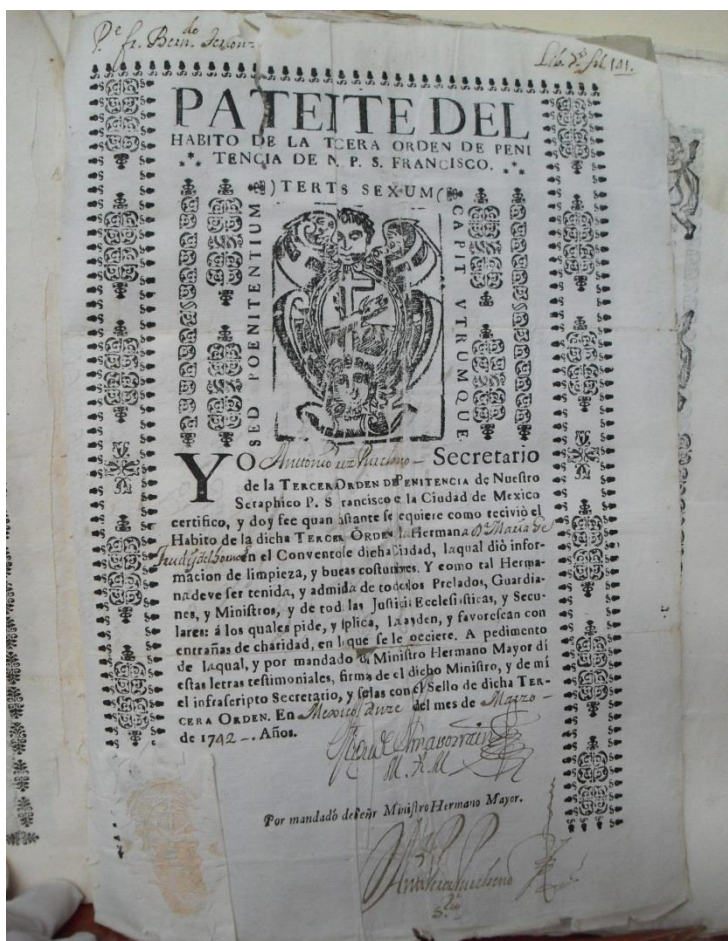 P.e fr. Bern.do
Lib. 7º fol 141.
PATEITE DEL
HABITO DE LA TCERA ORDEN DE PENI
TENCIA DE N. P. S. FRANCISCO.
)TERTS SEXUM(
SED POENITENTIUM
CAPIT VTRUMQUE
YO Antonio Secretario
de la TERCER ORDEN DE PENITENCIA de Nuestro
Seraphico P. S rancisco e la Ciudad de Mexico
certifico, y doy fee quan astante se equiere como recivió el
Habito de la dicha TERCER ORDEN la Hermana Dª Maria de
en el Convento e dicha iudad, laqual dió infor-
macion de limpieza, y bueas costubres. Y como tal Herma-
na deve ser tenida, y admida de todos los Prelados, Guardia-
nes, y Ministros, y de tod las Justicia Ecclesiasticas, y Secu-
lares: á los quales pide, y splica, la ayden, y favorescan con
entrañas de charidad, en lo que se le occiere. A pedimento
de laqual, y por mandado Ministro Hermano Mayor dí
estas letras testimoniales, firma de el dicho Ministro, y de mí
el infrascripto Secretario, y selas con el Sello de dicha TER-
CERA ORDEN. En Mexico duze del mes de Marzo
de 1742 Años.
Por mandado de señr Ministro Hermano Mayor.